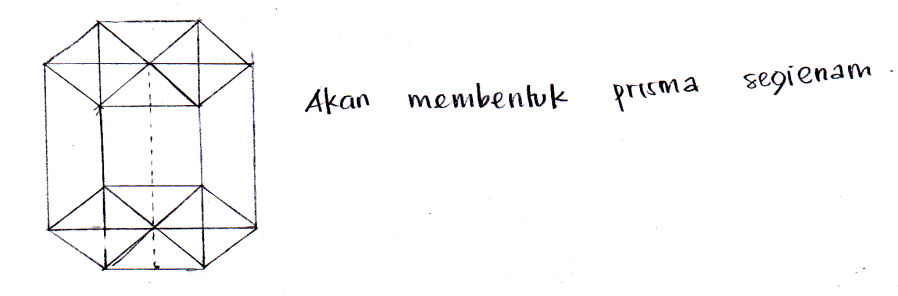 Akan membentuk prisma segienam.